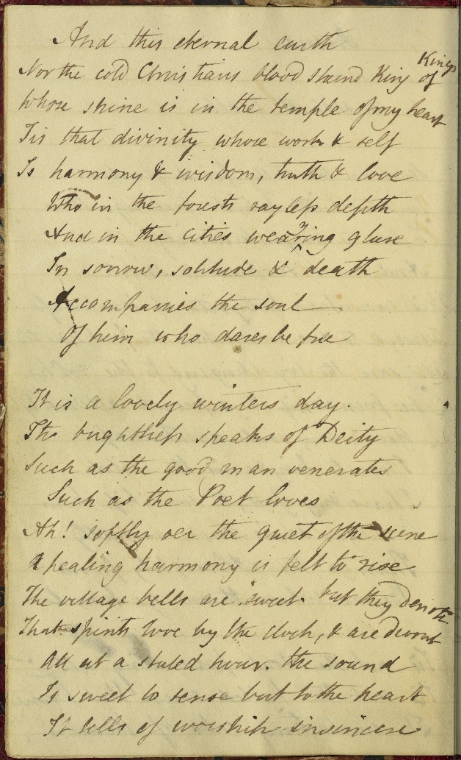 And this eternal earth
Nor the cold Christians blood staind King of Kings
Whose shrine is in the temple of my heart
Tis that divinity whose work & self
Is harmony & wisdom, truth & love
Who in the forests rayless depth
And in the cities wearying glare
In sorrow, solitude & death
Accompanies the soul
Of him who dares be free

It is a lovely winters day.
Its brightness speaks of Deity
Such as the good man venerates
Such as the Poet loves
Ah! softly oer the quiet of the scene
A pealing harmony is felt to rise
The village bells are sweet but they denote
That spirits love by the clock, & are devout
All at a stated hour. the sound
Is sweet to sense but to the heart
It tells of worship insincere